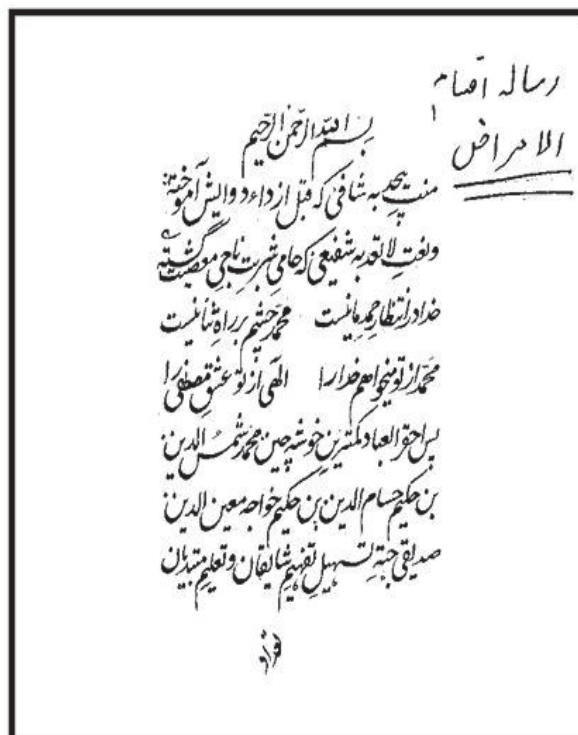 رساله اقسام
الامراض
بسم الله الرحمن الرحیم
منت بیحد به شافی که قبل از داء دوایش آموخته
ونعت لا تعد به شفیعی که حامی شربت ناجی معصیت گشته
خدا در انتظار حمد ما نیست محمد چشم بر راه ثنا نیست
محمد از تو میخواهم خدا را الهی از تو عشق مصطفی را
پس احقر العباد کمترین خوشه چین محمد شمس الدین
بن حکیم حسام الدین بن حکیم خواجه معین الدین
صدیقی جهته تسهیل تفهیم شایقان وتعلیم مبتدیان